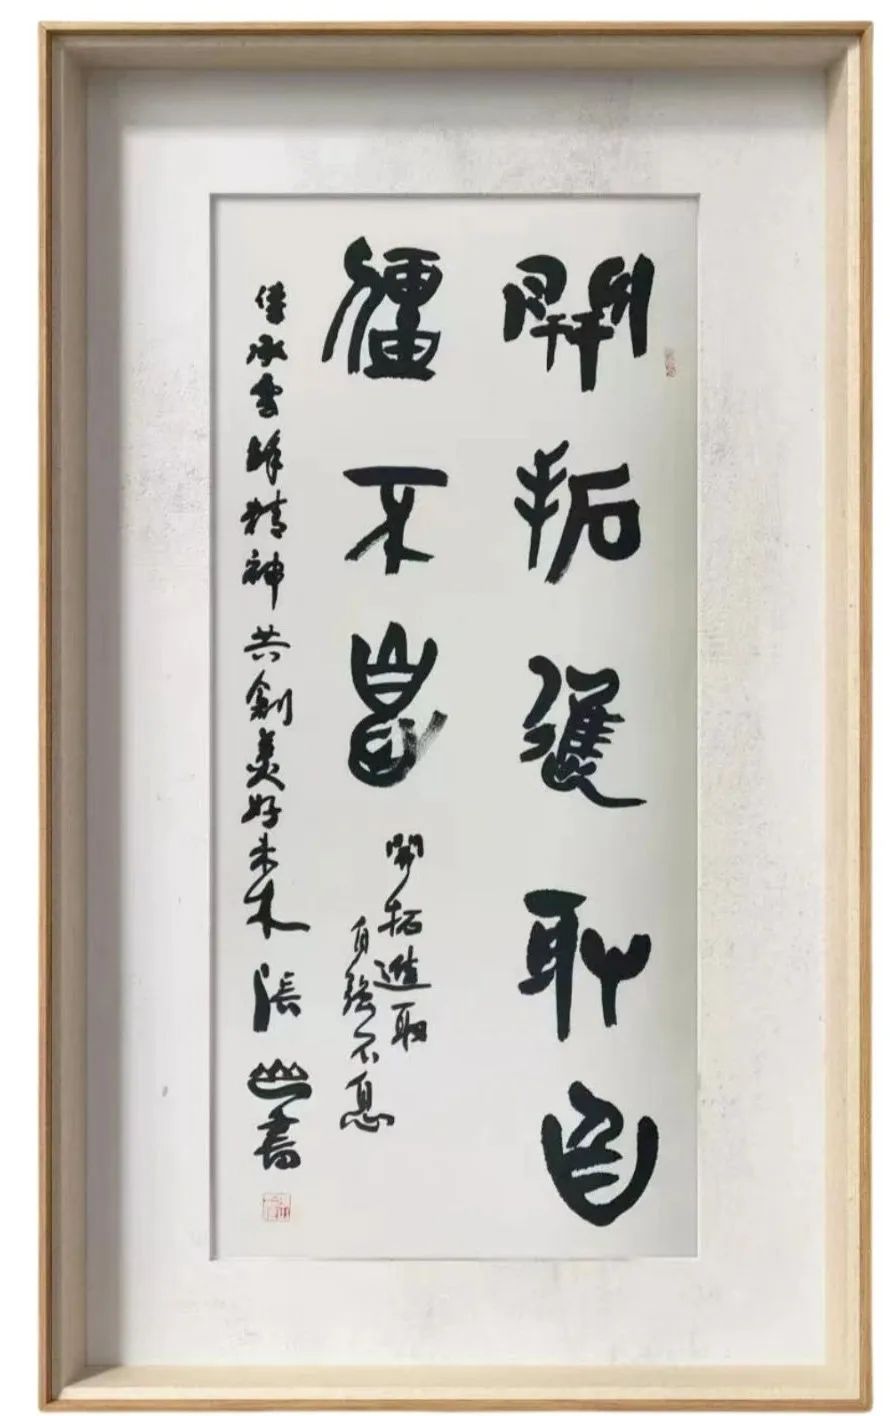 開拓進取自
彊不息
開拓進取
自強不息
傳承雪峰精神共創美好未来張山書